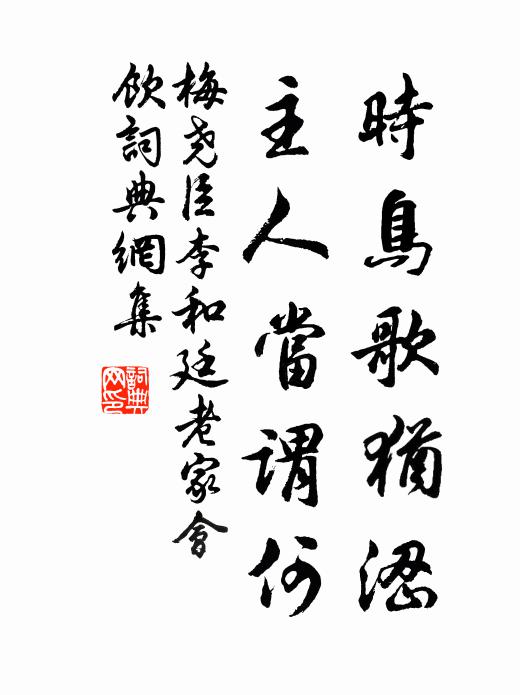 時鳥歌猶澀
主人當謂何
梅堯臣李和廷老家會
飲詞典網集
詞典
网印